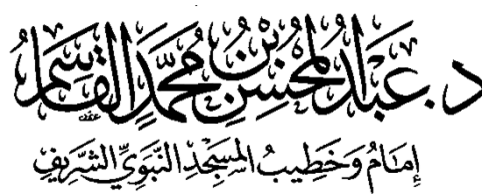 د. عَبْدُ الْمُحْسِنِ بْنُ مُحَمَّدٍ الْقَاسِمُ
إِمَامُ وَخَطِيبُ الْمَسْجِدِ النَّبَوِيِّ الشَّرِيفِ